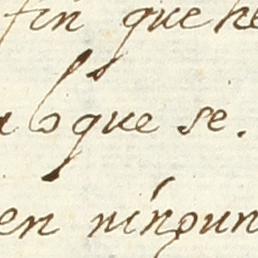 fin que he
a lo que se.
en ningun